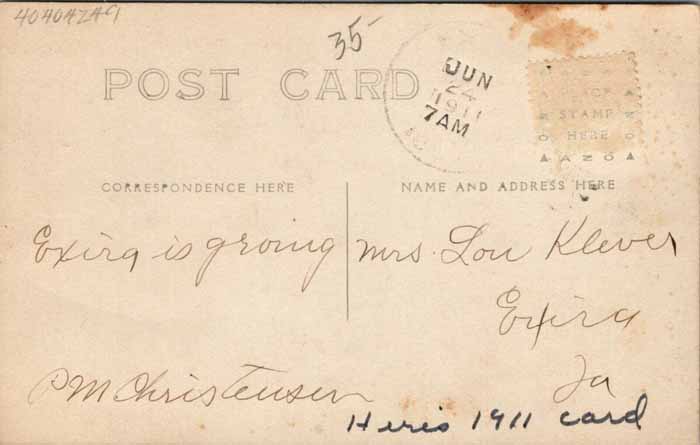 404042A9
35
POST CARD
JUN
24
1911
7AM
PLACE
STAMP
HERE
AZNO
CORRESPONDENCE HERE
NAME AND ADDRESS HERE
Exira is groing
P M Christensen
Mrs. Lou Klever
Exira
Ia
Heris 1911 card